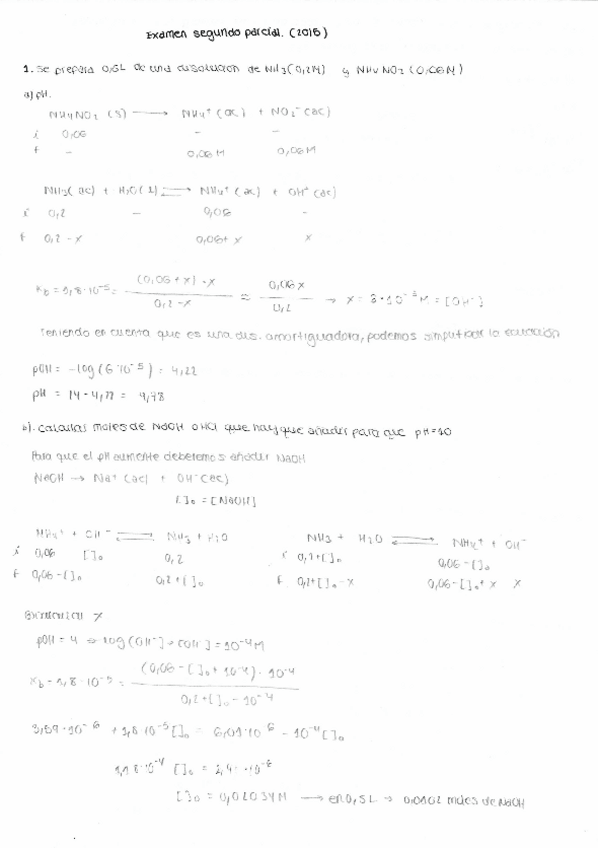 Examen segundo parcial. (2015)
1. Se prepara 0,5L de una disolución de NH3 (0,2M) y NH4NO2 (0,06M)
a) pH.
NH4NO2 (s) → NH4+ (ac) + NO2- (ac)
i 0,06 - -
f - 0,06 M 0,06 M
NH3 (ac) + H2O (l) ⇌ NH4+ (ac) + OH- (ac)
i 0,2 - 0,06 -
f 0,2 - x 0,06 + x x
Kb = 1,8·10^-5 = (0,06 + x)·x / 0,2 - x ≈ 0,06x / 0,2 → x = 10^-5 M = [OH-]
Teniendo en cuenta que es una dis. amortiguadora, podemos simplificar la ecuación
pOH = -log (6·10^-5) = 4,22
pH = 14 - 4,22 = 9,78
b). Calcular moles de NaOH o HCl que hay que añadir para que pH=10
Para que el pH aumente deberemos añadir NaOH
NaOH → Na+ (ac) + OH- (ac)
[ ]o = [NaOH]
NH4+ + OH- ⇌ NH3 + H2O
i 0,06 [ ]o 0,2
f 0,06 - [ ]o 0,2 + [ ]o
NH3 + H2O ⇌ NH4+ + OH-
i 0,2 + [ ]o 0,06 - [ ]o
f 0,2 + [ ]o - x 0,06 - [ ]o + x x
x
pOH = 4 → log [OH-] → [OH-] = 10^-4 M
Kb = 1,8·10^-5 = (0,06 - [ ]o + 10^-4)·10^-4 / 0,2 + [ ]o - 10^-4
3,59·10^-6 + 1,8·10^-5 [ ]o = 6,01·10^-6 - 10^-4 [ ]o
1,18·10^-4 [ ]o =
[ ]o = 0,02034 M → en 0,5 L → 0,0102 moles de NaOH